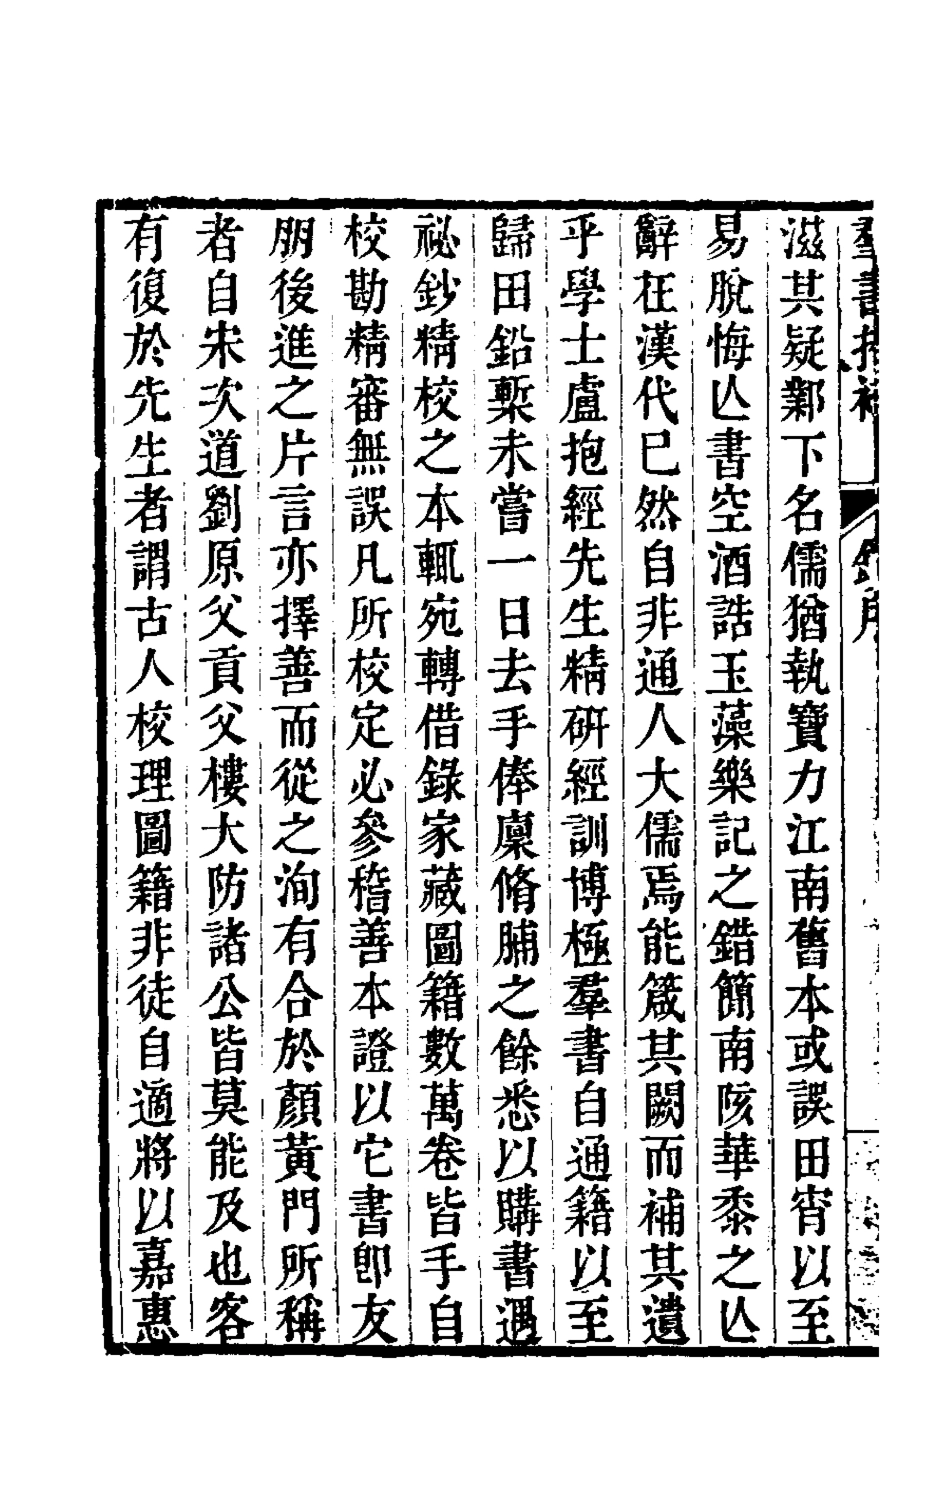 羣書拾補
錢序
滋其疑鄴下名儒猶執寶力江南舊本或誤田宵以至
易脫悔亾書空酒誥玉藻樂記之錯簡南陔華黍之亾
辭在漢代已然自非通人大儒焉能箴其闕而補其遺
乎學士盧抱經先生精研經訓博極羣書自通籍以至
歸田鉛槧未嘗一日去手俸廩脩脯之餘悉以購書遇
祕鈔精校之本輒宛轉借錄家藏圖籍數萬卷皆手自
校勘精審無誤凡所校定必參稽善本證以它書卽友
朋後進之片言亦擇善而從之洵有合於顏黃門所稱
者自宋次道劉原父貢父樓大防諸公皆莫能及也客
有復於先生者謂古人校理圖籍非徒自適將以嘉惠